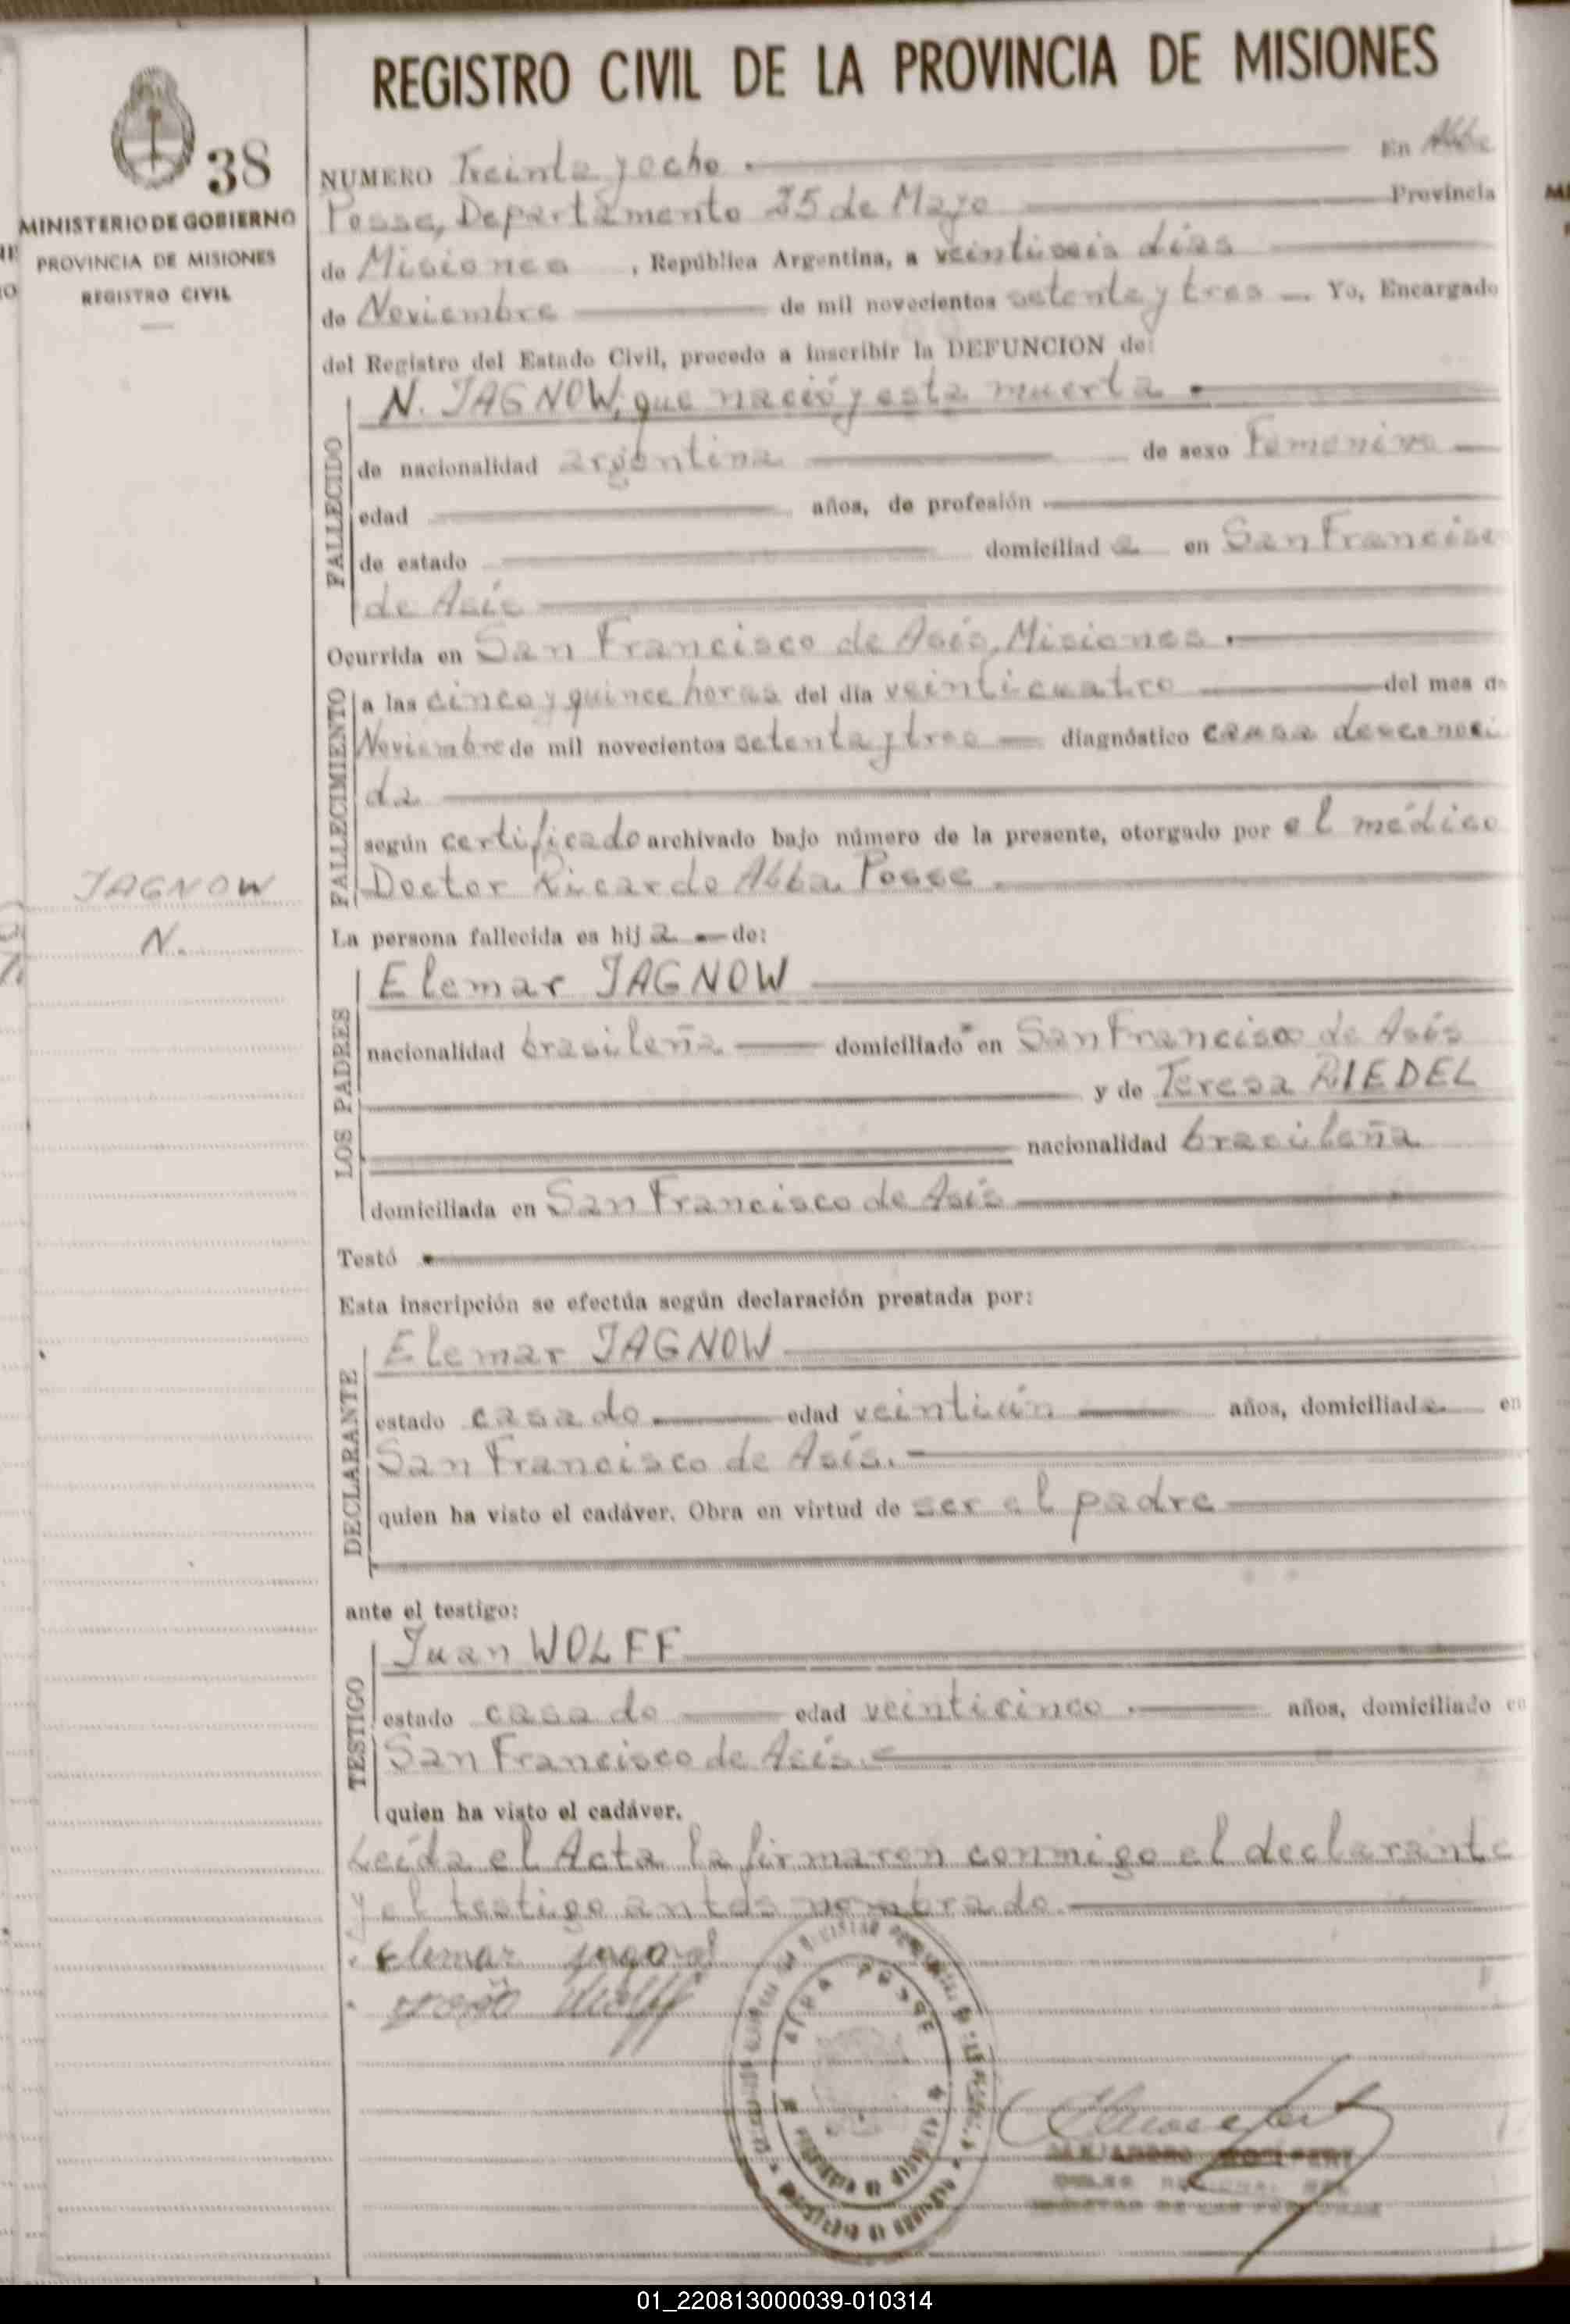 REGISTRO CIVIL DE LA PROVINCIA DE MISIONES
38
MINISTERIO DE GOBIERNO
PROVINCIA DE MISIONES
REGISTRO CIVIL
NUMERO Treinta y ocho En Alba
Posse, Departamento 25 de Mayo Provincia
de Misiones, República Argentina, a veintiseis días
de Noviembre de mil novecientos setenta y tres Yo, Encargado
del Registro del Estado Civil, procedo a inscribir la DEFUNCION de:
FALLECIDO
N. JAGNOW, que nació y esta muerta
de nacionalidad argentina de sexo Femenino
edad años, de profesión
de estado domiciliad a en San Francisco
de Asís
Ocurrida en San Francisco de Asís, Misiones.
FALLECIMIENTO
a las cinco y quince horas del día veinticuatro del mes de
Noviembre de mil novecientos setenta y tres diagnóstico causa desconoci
da
según certificado archivado bajo número de la presente, otorgado por el médico
Doctor Ricardo Abba. Posse
JAGNOW
N.
La persona fallecida es hij a de:
LOS PADRES
Elemar JAGNOW
nacionalidad brasileña domiciliado en San Francisco de Asís
y de Teresa RIEDEL
nacionalidad brasileña
domiciliada en San Francisco de Asís
Testó
Esta inscripción se efectúa según declaración prestada por:
DECLARANTE
Elemar JAGNOW
estado casado edad veintiún años, domiciliado en
San Francisco de Asís.
quien ha visto el cadáver. Obra en virtud de ser el padre
ante el testigo:
TESTIGO
Juan WOLFF
estado casado edad veinticinco años, domiciliado en
San Francisco de Asís.
quien ha visto el cadáver.
Leída el Acta la firmaron conmigo el declarante
y el testigo antes nombrado.
Elemar
Wolff
ALBA POSSE
MINISTERIO DE GOBIERNO
ALEJANDRO
01_220813000039-010314